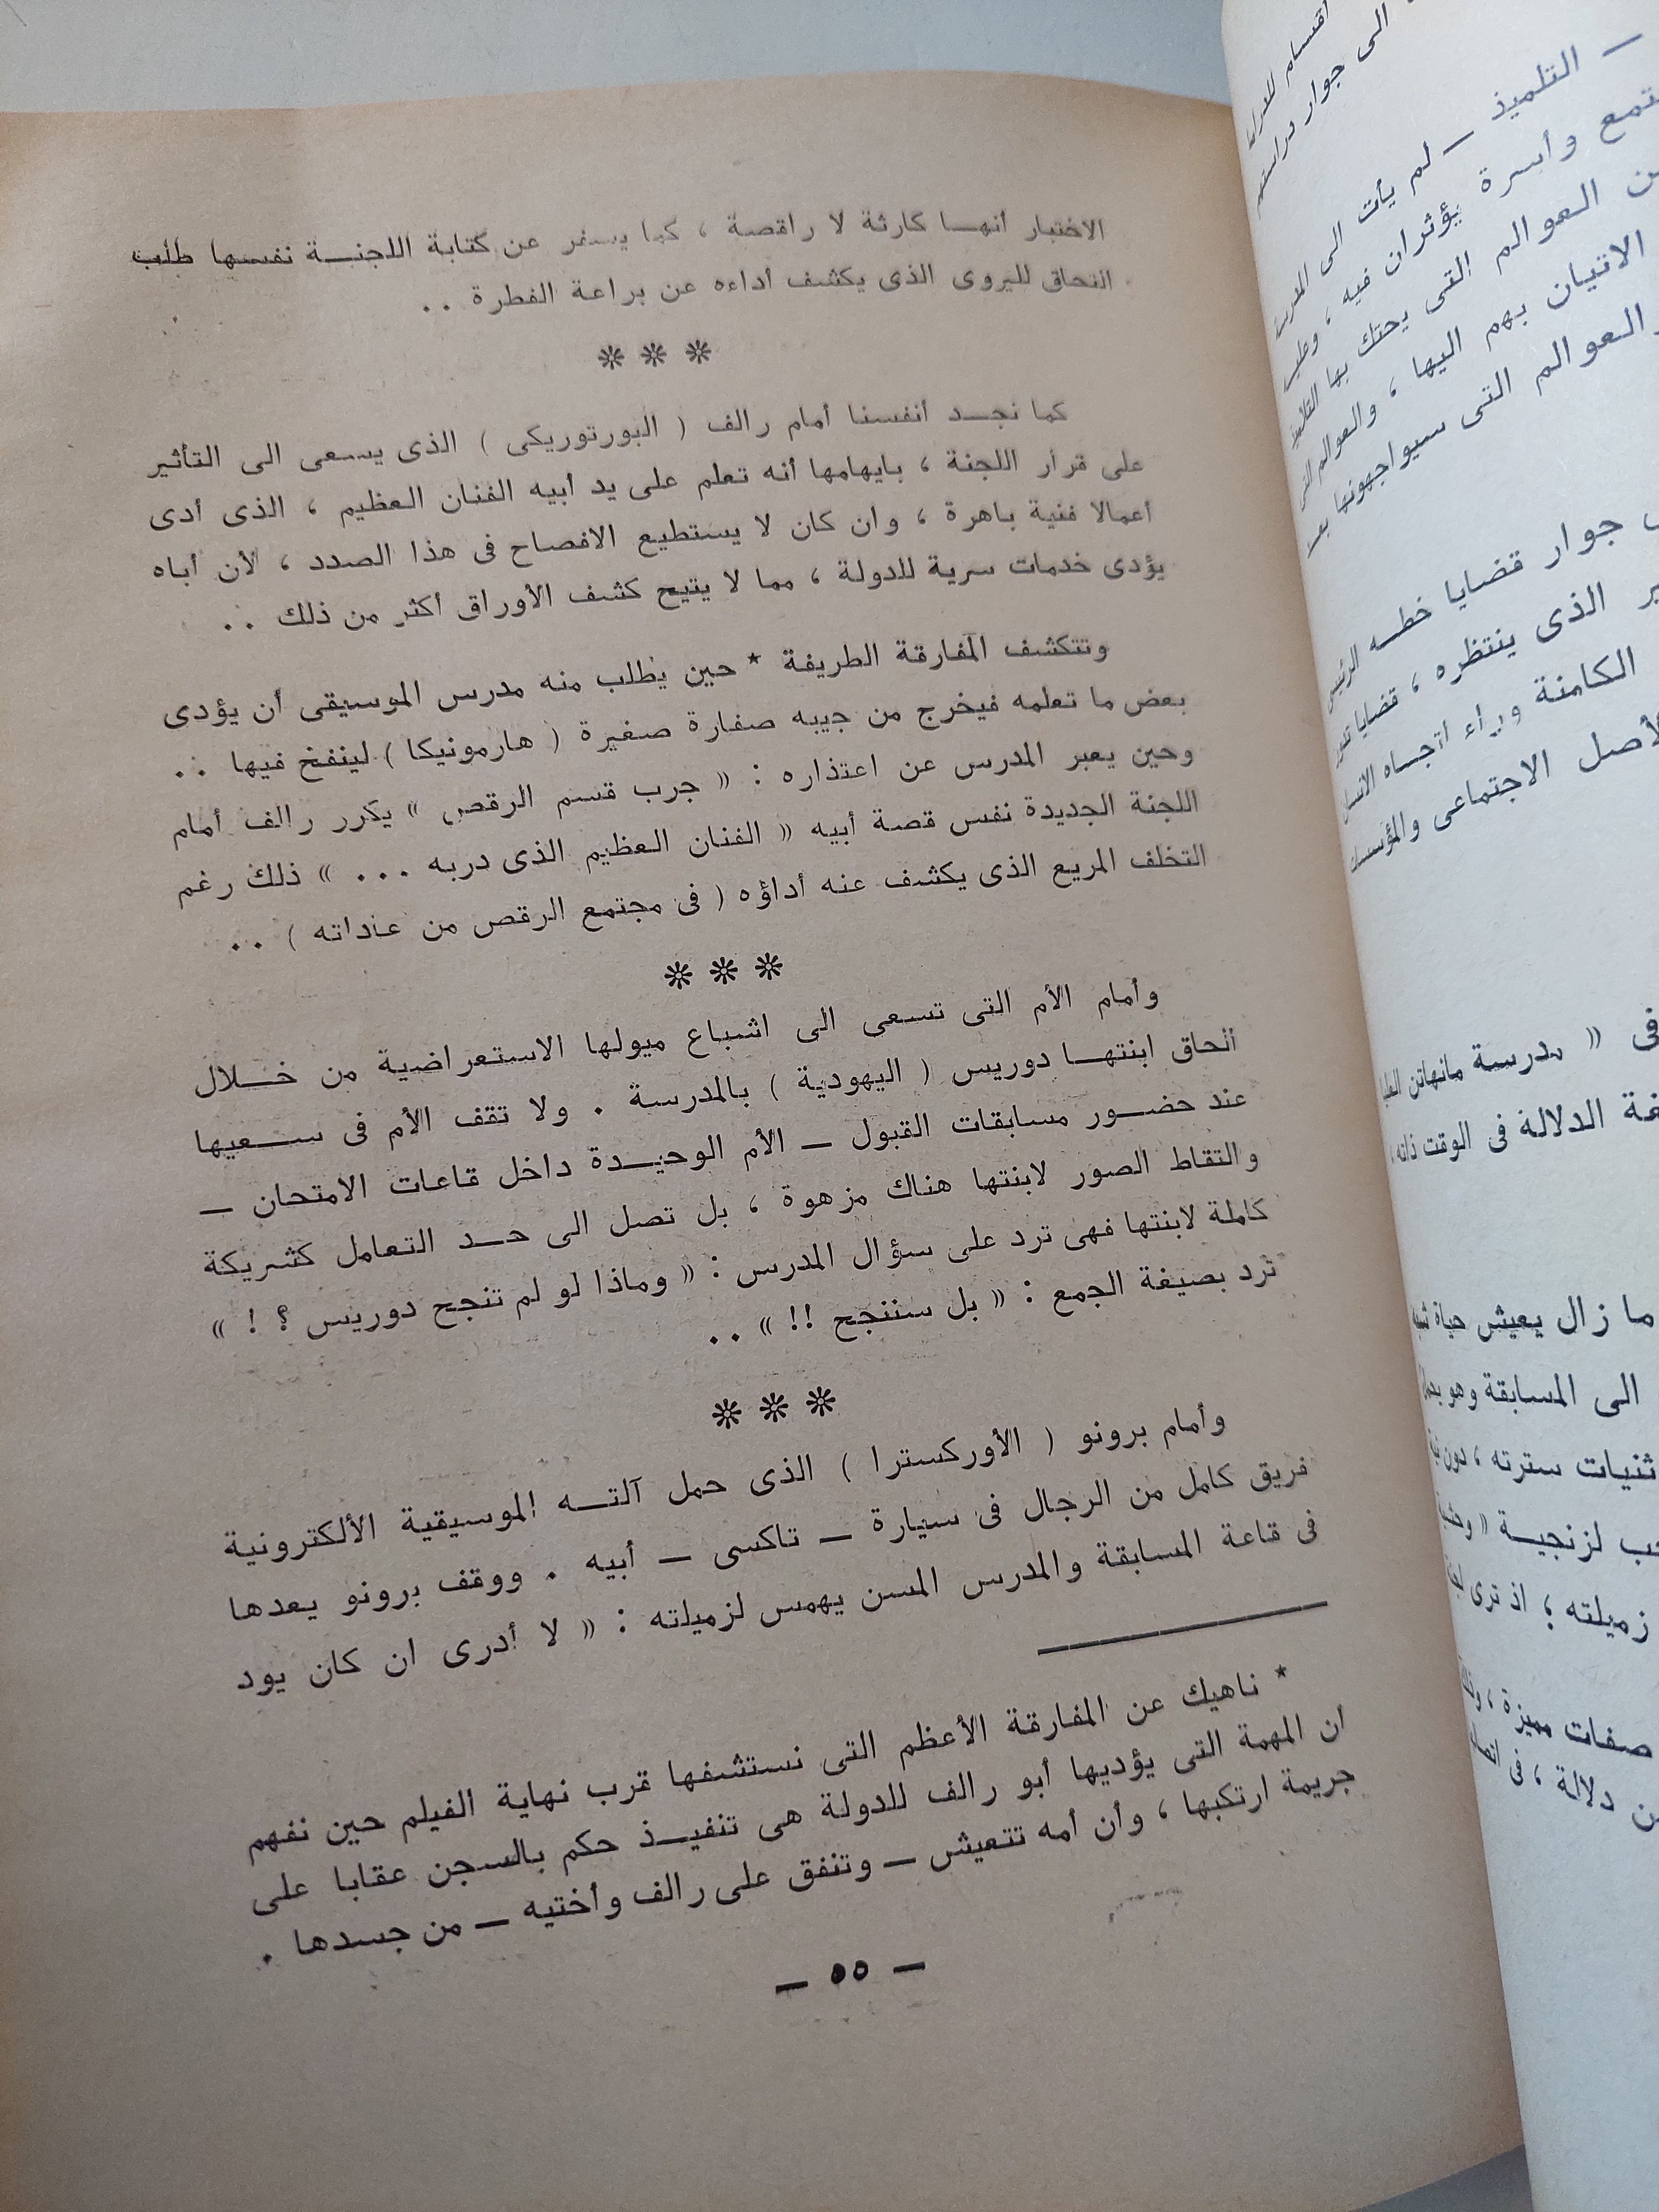 الاختبار أنهـا كارثة لا راقصة ، كما يسفر عن كتابة اللجنـة نفسها طلب
التحاق لليروى الذى يكشف أداءه عن براعة الفطرة ..
❊ ❊ ❊
كما نجـد أنفسنا أمام رالف ( البورتوريكى ) الذى يسعى الى التأثير
على قرار اللجنة ، بايهامها أنه تعلم على يد أبيه الفنان العظيم ، الذى أدى
أعمالا فنية باهرة ، وان كان لا يستطيع الافصاح فى هذا الصدد ، لأن أباه
يؤدى خدمات سرية للدولة ، مما لا يتيح كشف الأوراق أكثر من ذلك ..
وتتكشف المفارقة الطريفة * حين يطلب منه مدرس الموسيقى أن يؤدى
بعض ما تعلمه فيخرج من جيبه صفارة صغيرة ( هارمونيكا ) لينفخ فيها ..
وحين يعبر المدرس عن اعتذاره : « جرب قسم الرقص » يكرر رالف أمام
اللجنة الجديدة نفس قصة أبيه « الفنان العظيم الذى دربه ... » ذلك رغم
التخلف المريع الذى يكشف عنه أداؤه ( فى مجتمع الرقص من عاداته ) ..
❊ ❊ ❊
وأمام الأم التى تسعى الى اشباع ميولها الاستعراضية من خـلال
الحاق ابنتهـا دوريس ( اليهودية ) بالمدرسة . ولا تقف الأم فى سـعيها
عند حضـور مسابقات القبول — الأم الوحيـدة داخل قاعات الامتحان —
والتقاط الصور لابنتها هناك مزهوة ، بل تصل الى حـد التعامل كشريكة
كاملة لابنتها فهى ترد على سؤال المدرس : « وماذا لو لم تنجح دوريس ؟ ! »
ترد بصيغة الجمع : « بل سننجح !! » ..
❊ ❊ ❊
وأمام برونو ( الأوركسترا ) الذى حمل آلتـه الموسيقية الألكترونية
فريق كامل من الرجال فى سيارة — تاكسى — أبيه . ووقف برونو يعدها
فى قاعة المسابقة والمدرس المسن يهمس لزميلته : « لا أدرى ان كان يود
* ناهيك عن المفارقة الأعظم التى نستشفها قرب نهاية الفيلم حين نفهم
أن المهمة التى يؤديها أبو رالف للدولة هى تنفيـذ حكم بالسجن عقابا على
جريمة ارتكبها ، وأن أمه تتعيش — وتنفق على رالف وأختيه — من جسدها .
— ٥٥ —
الى جوار دراسته
— التلميذ — لم يأت الى المدرسة
وأسرة يؤثران فيه ،
العوالم التى يحتك بها
الاتيان بهم اليها ، والعوالم
العوالم التى سيواجهونها بعد
جوار قضايا خطـه الرئيس
الذى ينتظره ، قضايا
الكامنة وراء اتجـاه
الأصل الاجتماعى
فى « مدرسة مانهاتن
الدلالة فى الوقت ذاته ،
ما زال يعيش حياة
الى المسابقة وهو
ثنيات سترته ، دون
لزنجيـة
زميلته ، اذ ترى
صفات مميزة ،
دلالة ، فى